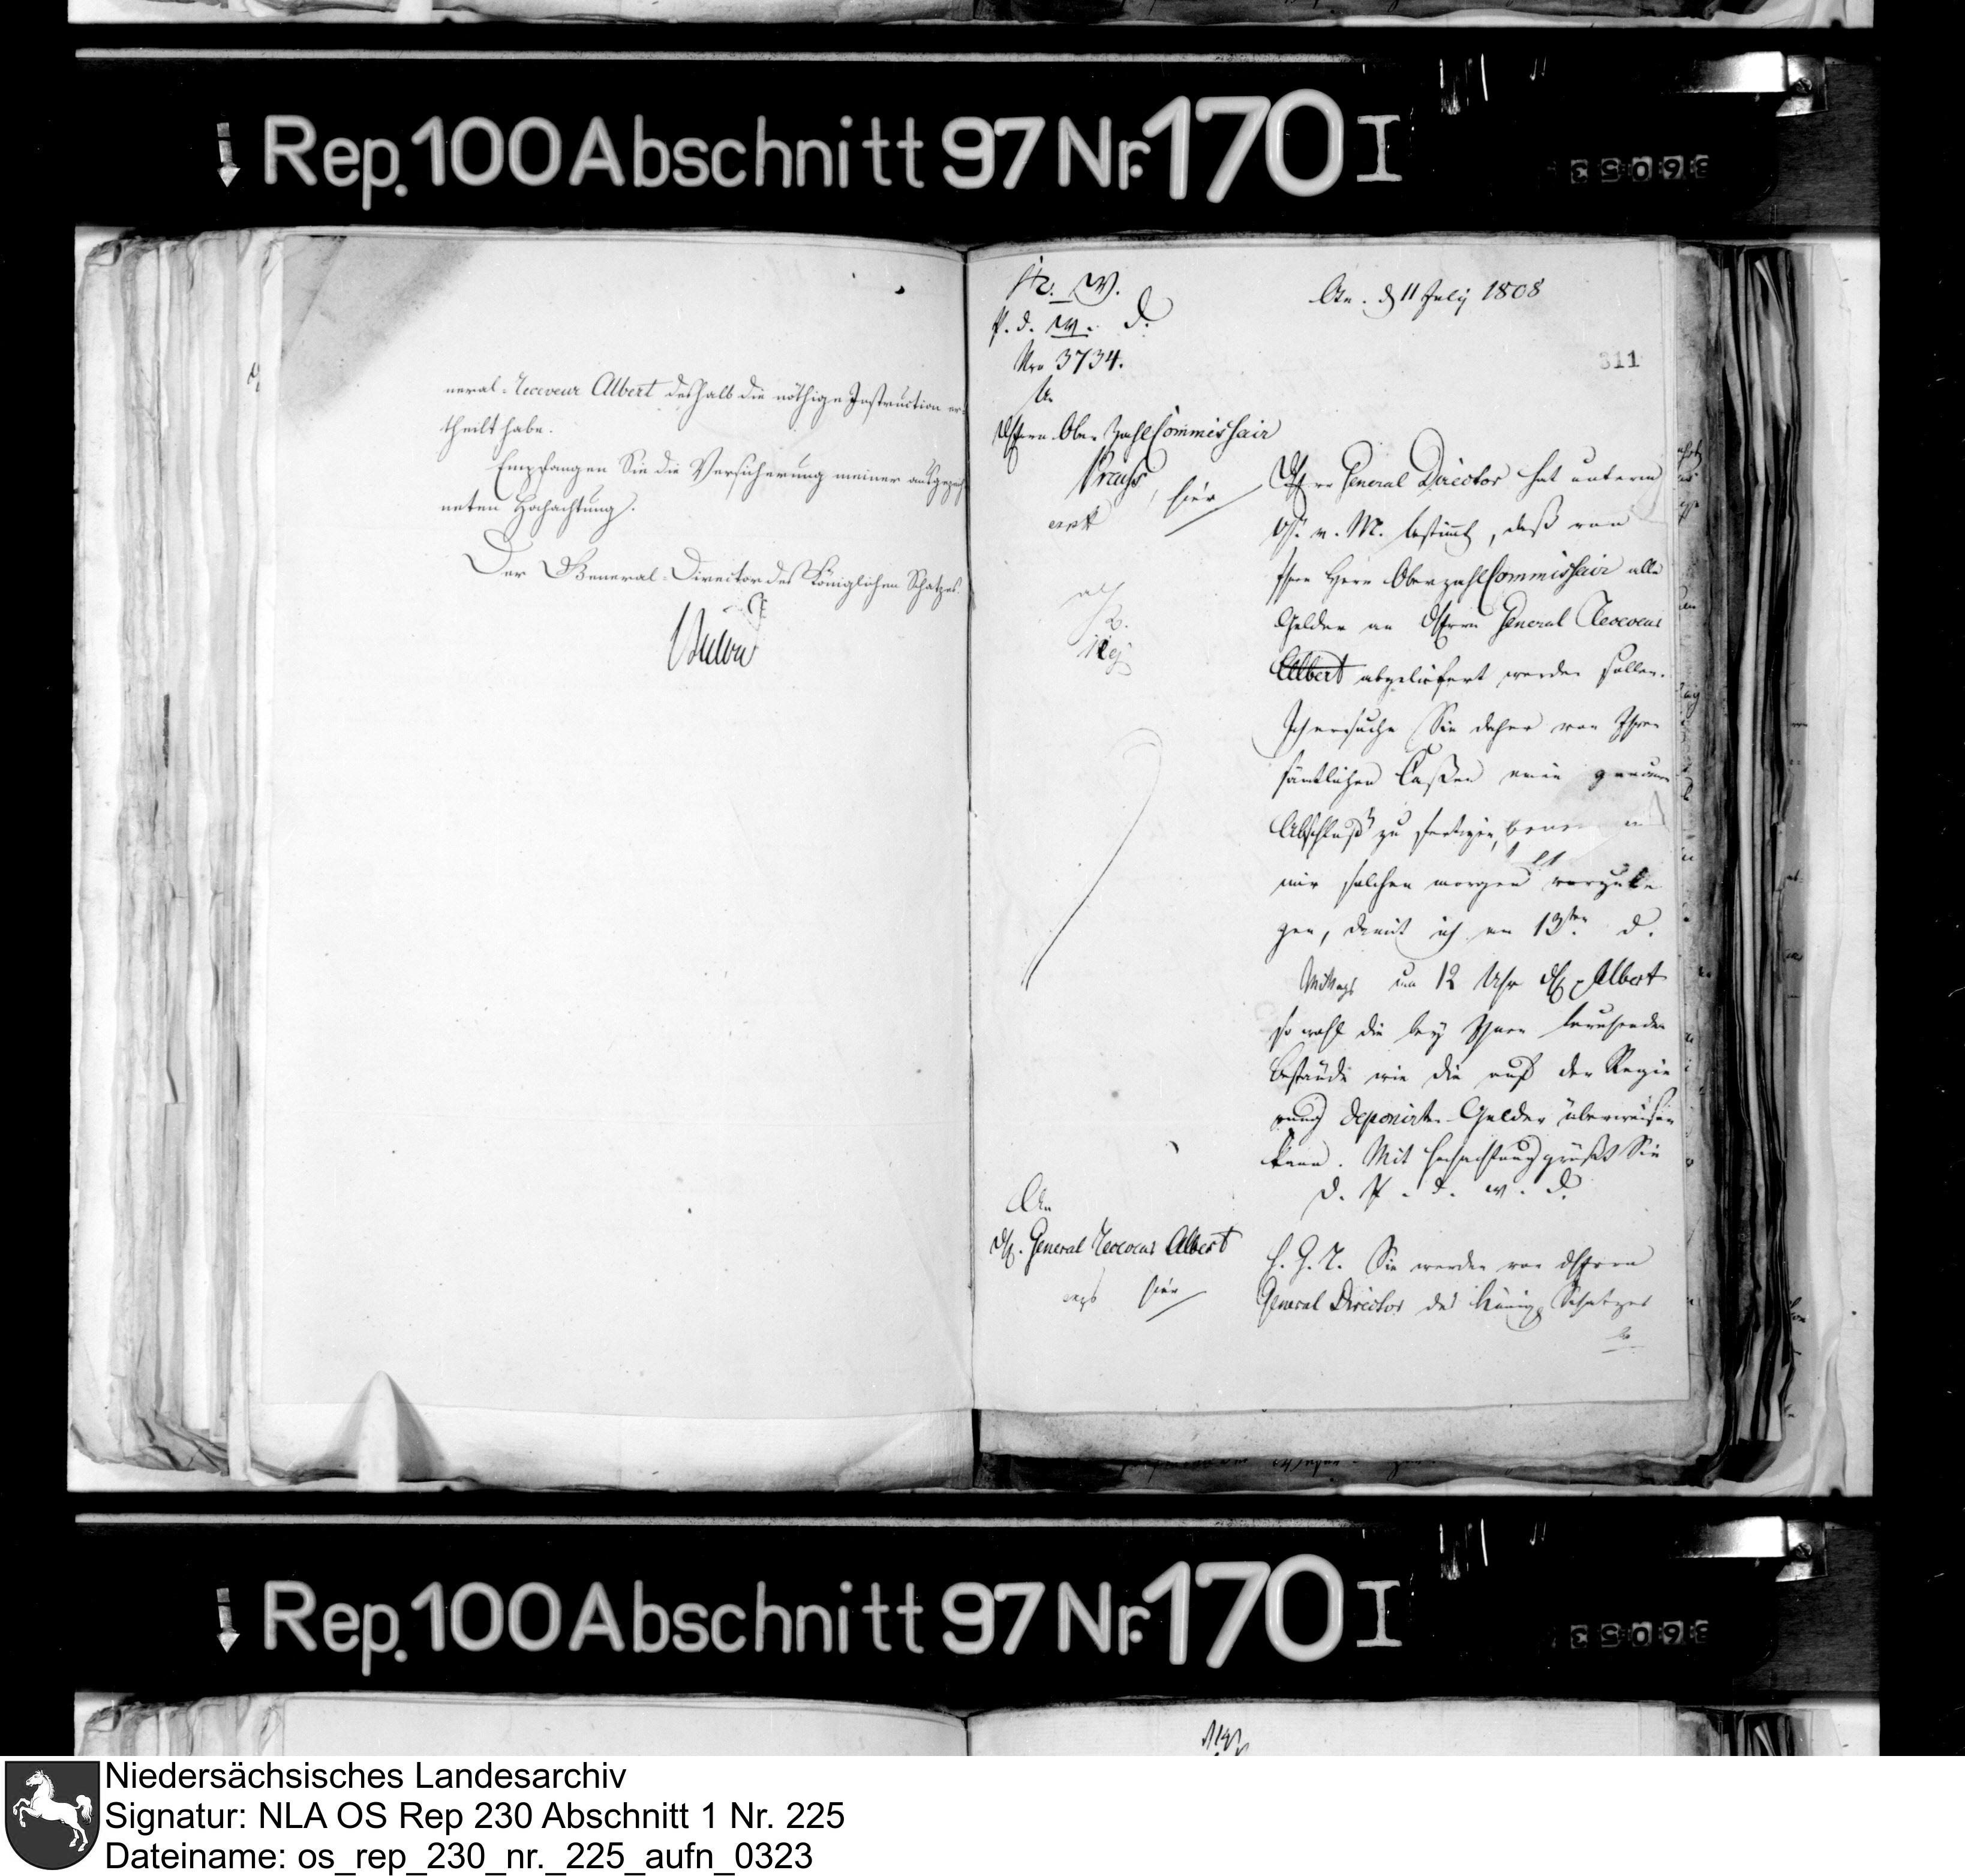 Rep. 100 Abschnitt 97 Nr. 170 I
36053
neral-Receveur Albert deshalb die nöthige Instruction er-
theilt habe.
Empfangen Sie die Versicherung meiner ausgezeich-
neten Hochachtung.
Der General-Director des Königlichen Schatzes.
K. W.
P. d. W. D.
Nro 3734.
An
Herrn Ober Zahl Commissair
hier
Osn. d 11 July 1808
311
Herr General Director hat unterm
v. M. bestimmt, daß von
Herrn Oberzahl Commissair alle
Gelder an Herrn General Receveur
Albert abgeliefert werden sollen.
Ich ersuche Sie daher von Ihren
sämtlichen Caßen einen genauen
Abschluß zu fertigen,
mir solchen morgen vorzule
gen, damit ich am 13ten d.
Mittags um 12 Uhr H. Albert
so wohl die bey Ihnen beruhenden
Bestände wie die auf der Regie
rung deponirten Gelder überweisen
kann. Mit Hochachtung grüßt Sie
D. P. d. W. D.
An
H. General Receveur Albert
hier
H. G. R. Sie werden von Herrn
General Director des Königl Schatzes
Rep. 100 Abschnitt 97 Nr. 170 I
36053
Niedersächsisches Landesarchiv
Signatur: NLA OS Rep 230 Abschnitt 1 Nr. 225
Dateiname: os_rep_230_nr._225_aufn_0323